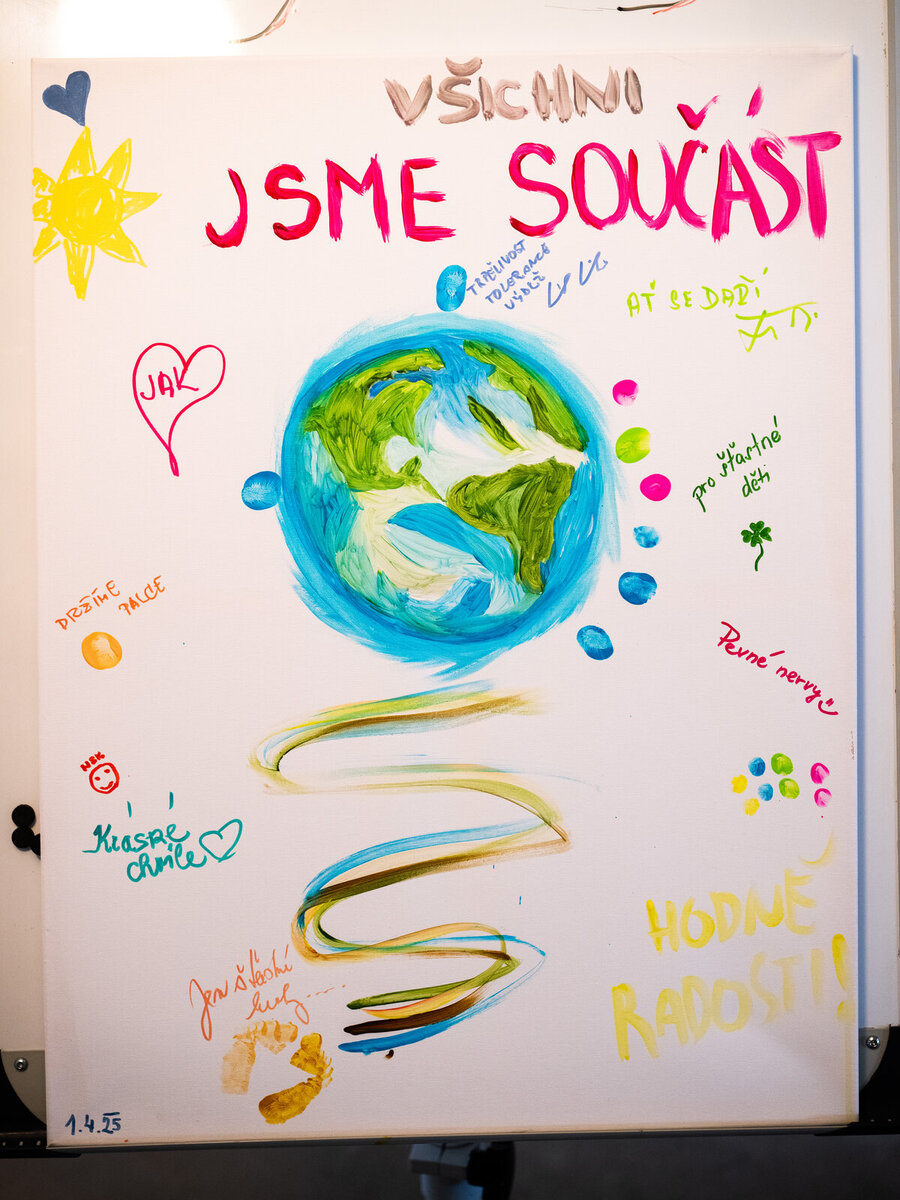 VŠICHNI
JSME SOUČÁST
TRPĚLIVOST
TOLERANCE
VÝDRŽ
AŤ SE DAŘÍ
JAK
pro šťastné
děti
DRŽÍME
PALCE
Pevné nervy
NEK
Krásné
chvíle
HODNĚ
RADOSTI!
Jen šťastní
1.4.25